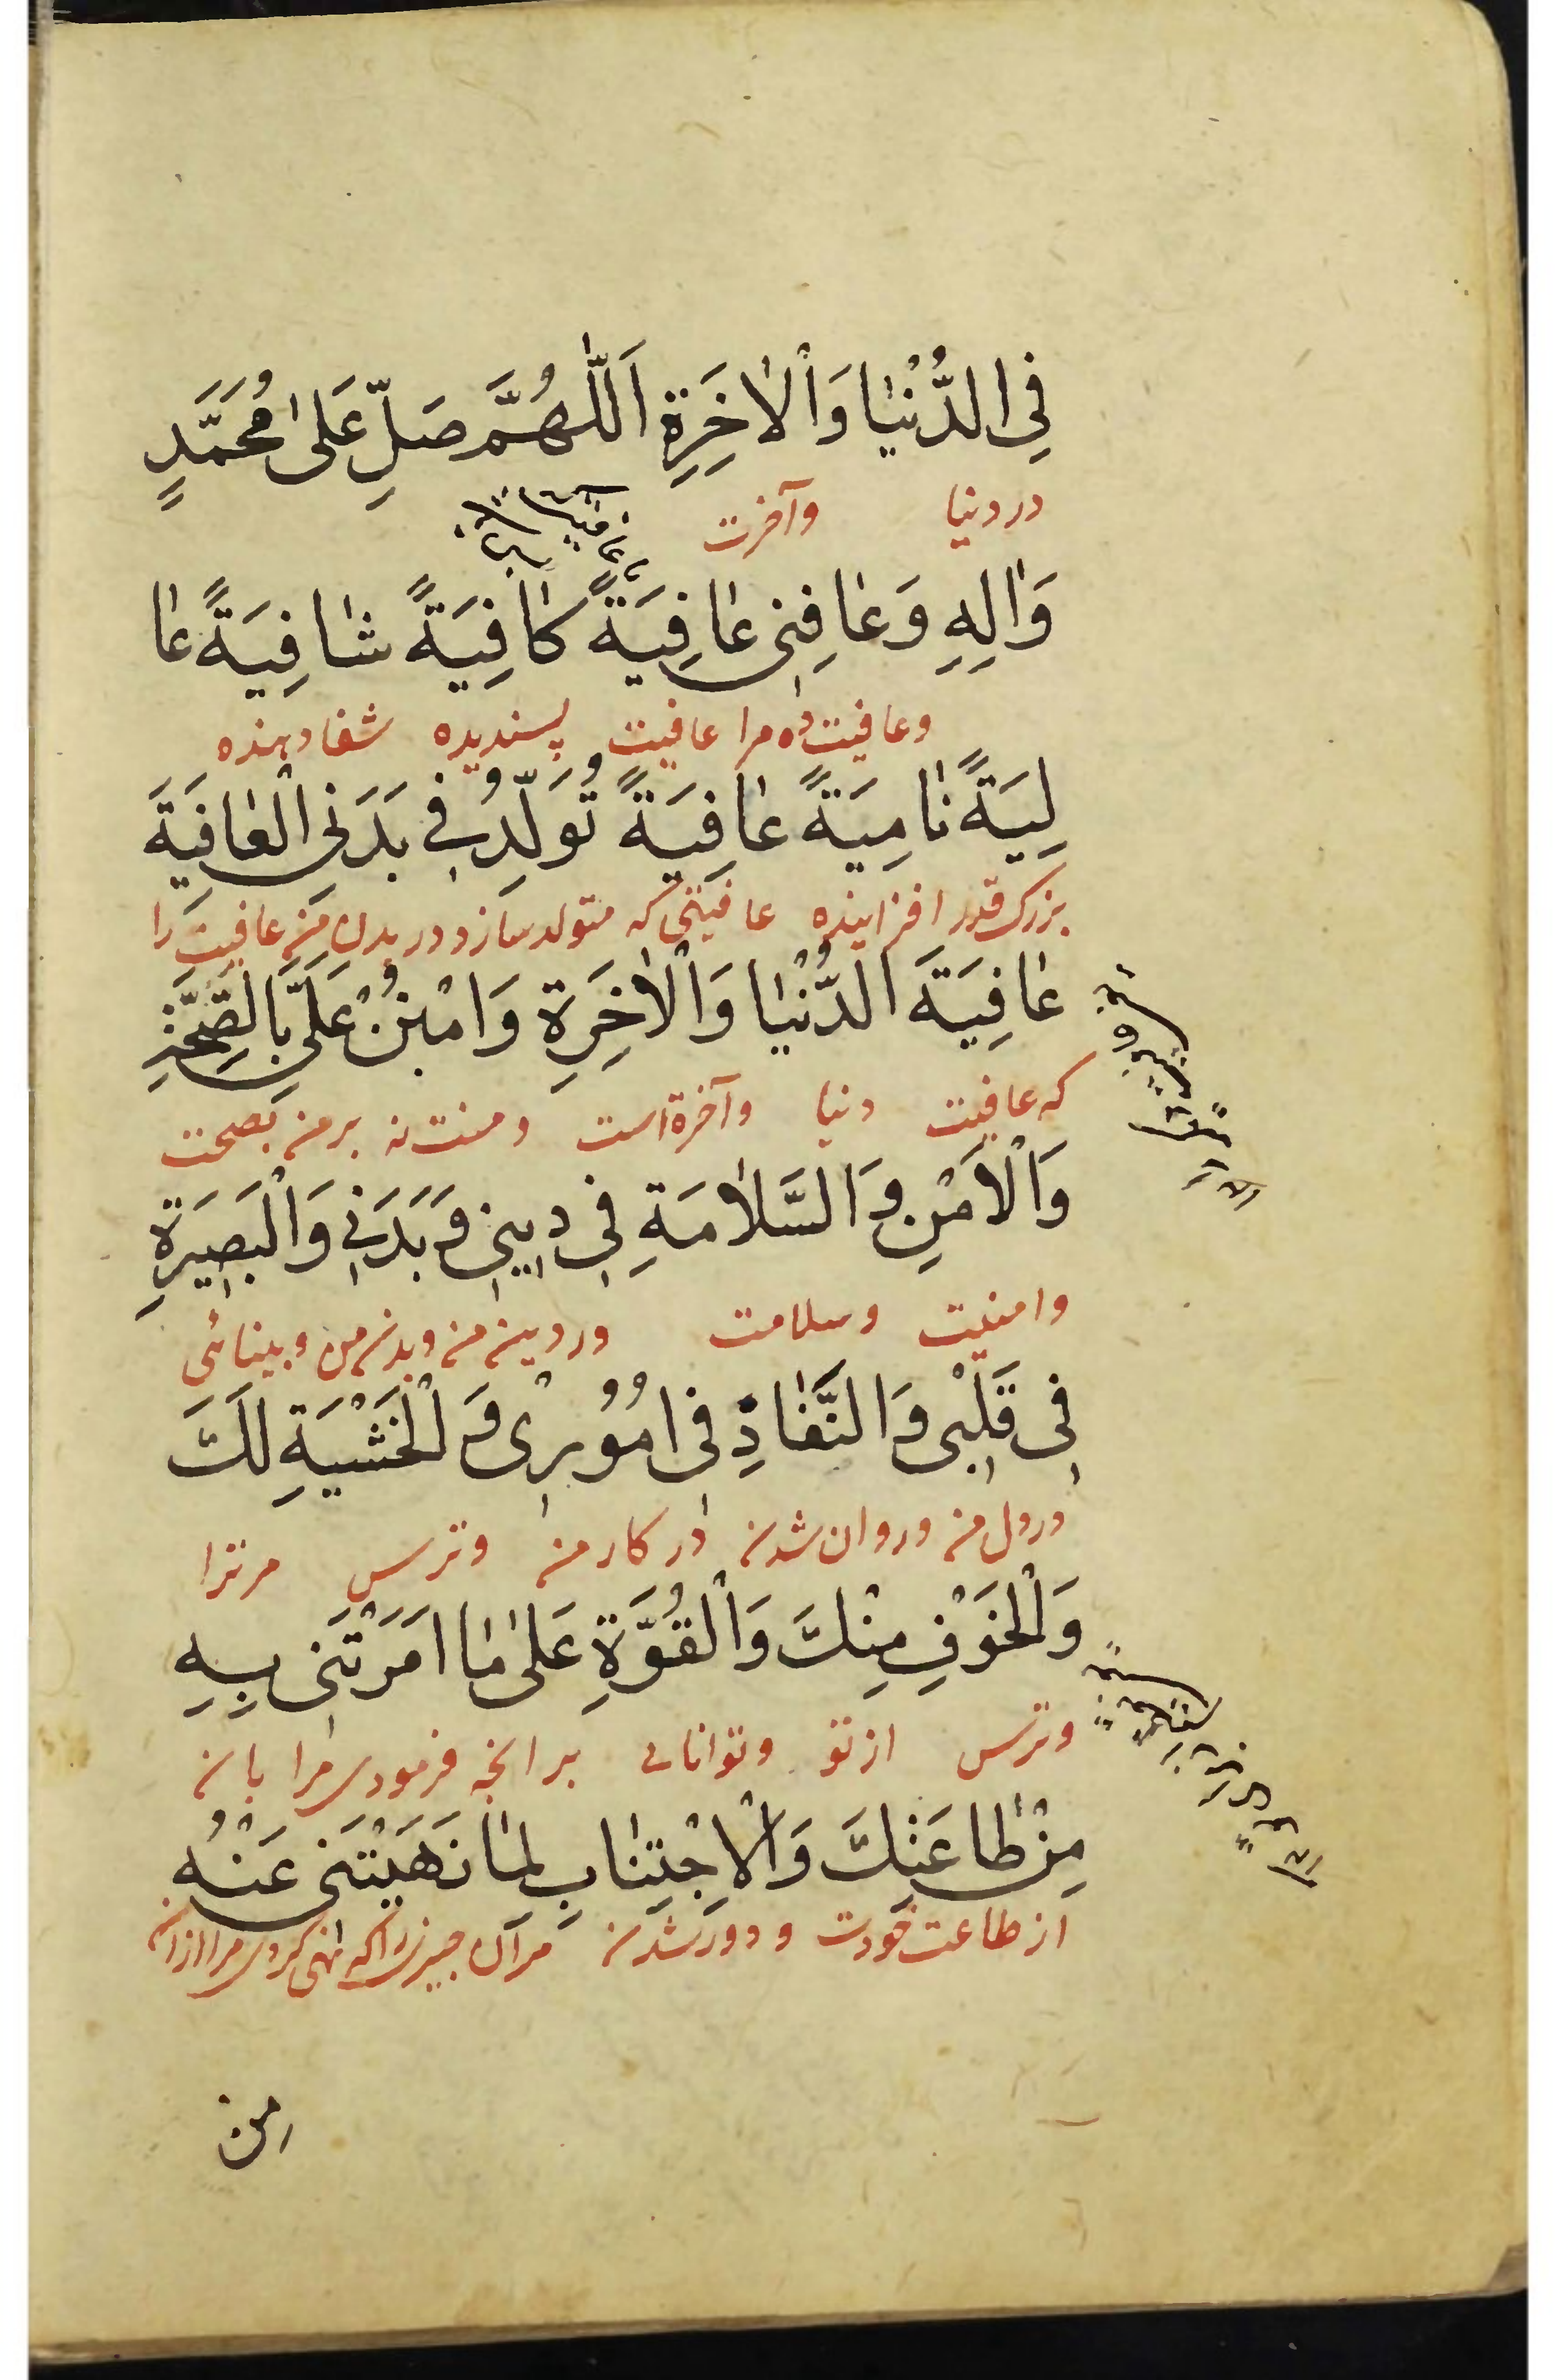 فِي الدُّنْيٰا وَالْاٰخِرَةِ اَللّٰهُمَّ صَلِّ عَلىٰ مُحَمَّدٍ
در دنیا وآخرت
وَاٰلِهِ وَعٰافِنِي عٰافِيَةً كٰافِيَةً شٰافِيَةً عٰا
وعافیت ده مرا عافیت پسندیده شفا دهنده
لِيَةً نٰامِيَةً عٰافِيَةً تُوَلِّدُ فِي بَدَنِي الْعٰافِيَةَ
بزرک قدر افزاینده عافیتی که متولد سازد در بدن من عافیت را
عٰافِيَةَ الدُّنْيٰا وَالْاٰخِرَةِ وَامْنُنْ عَلَيَّ بِالصِّحَّةِ
که عافیت دنیا وآخرة است ومنت نه بر من بصحت
وَالْاَمْنِ وَالسَّلاٰمَةِ فِي دِينِي وَبَدَنِي وَالْبَصِيرَةِ
وامنیت وسلامت در دین من وبدن من وبینائی
فِي قَلْبِي وَالنَّفٰاذِ فِي اُمُوُرِي وَالْخَشْيَةِ لَكَ
در دل من وروان شدن در کار من وترس مر ترا
وَالْخَوْفِ مِنْكَ وَالْقُوَّةِ عَلىٰ مٰا اَمَرْتَنِي بِهِ
وترس از تو وتوانائی بر انچه فرمودی مرا بان
مِنْ طٰاعَتِكَ وَالْاِجْتِنٰابِ لِمٰا نَهَيْتَنِي عَنْهُ
از طاعت خودت ودور شدن مر آن چیزیرا که نهی کردی مرا از ان
من